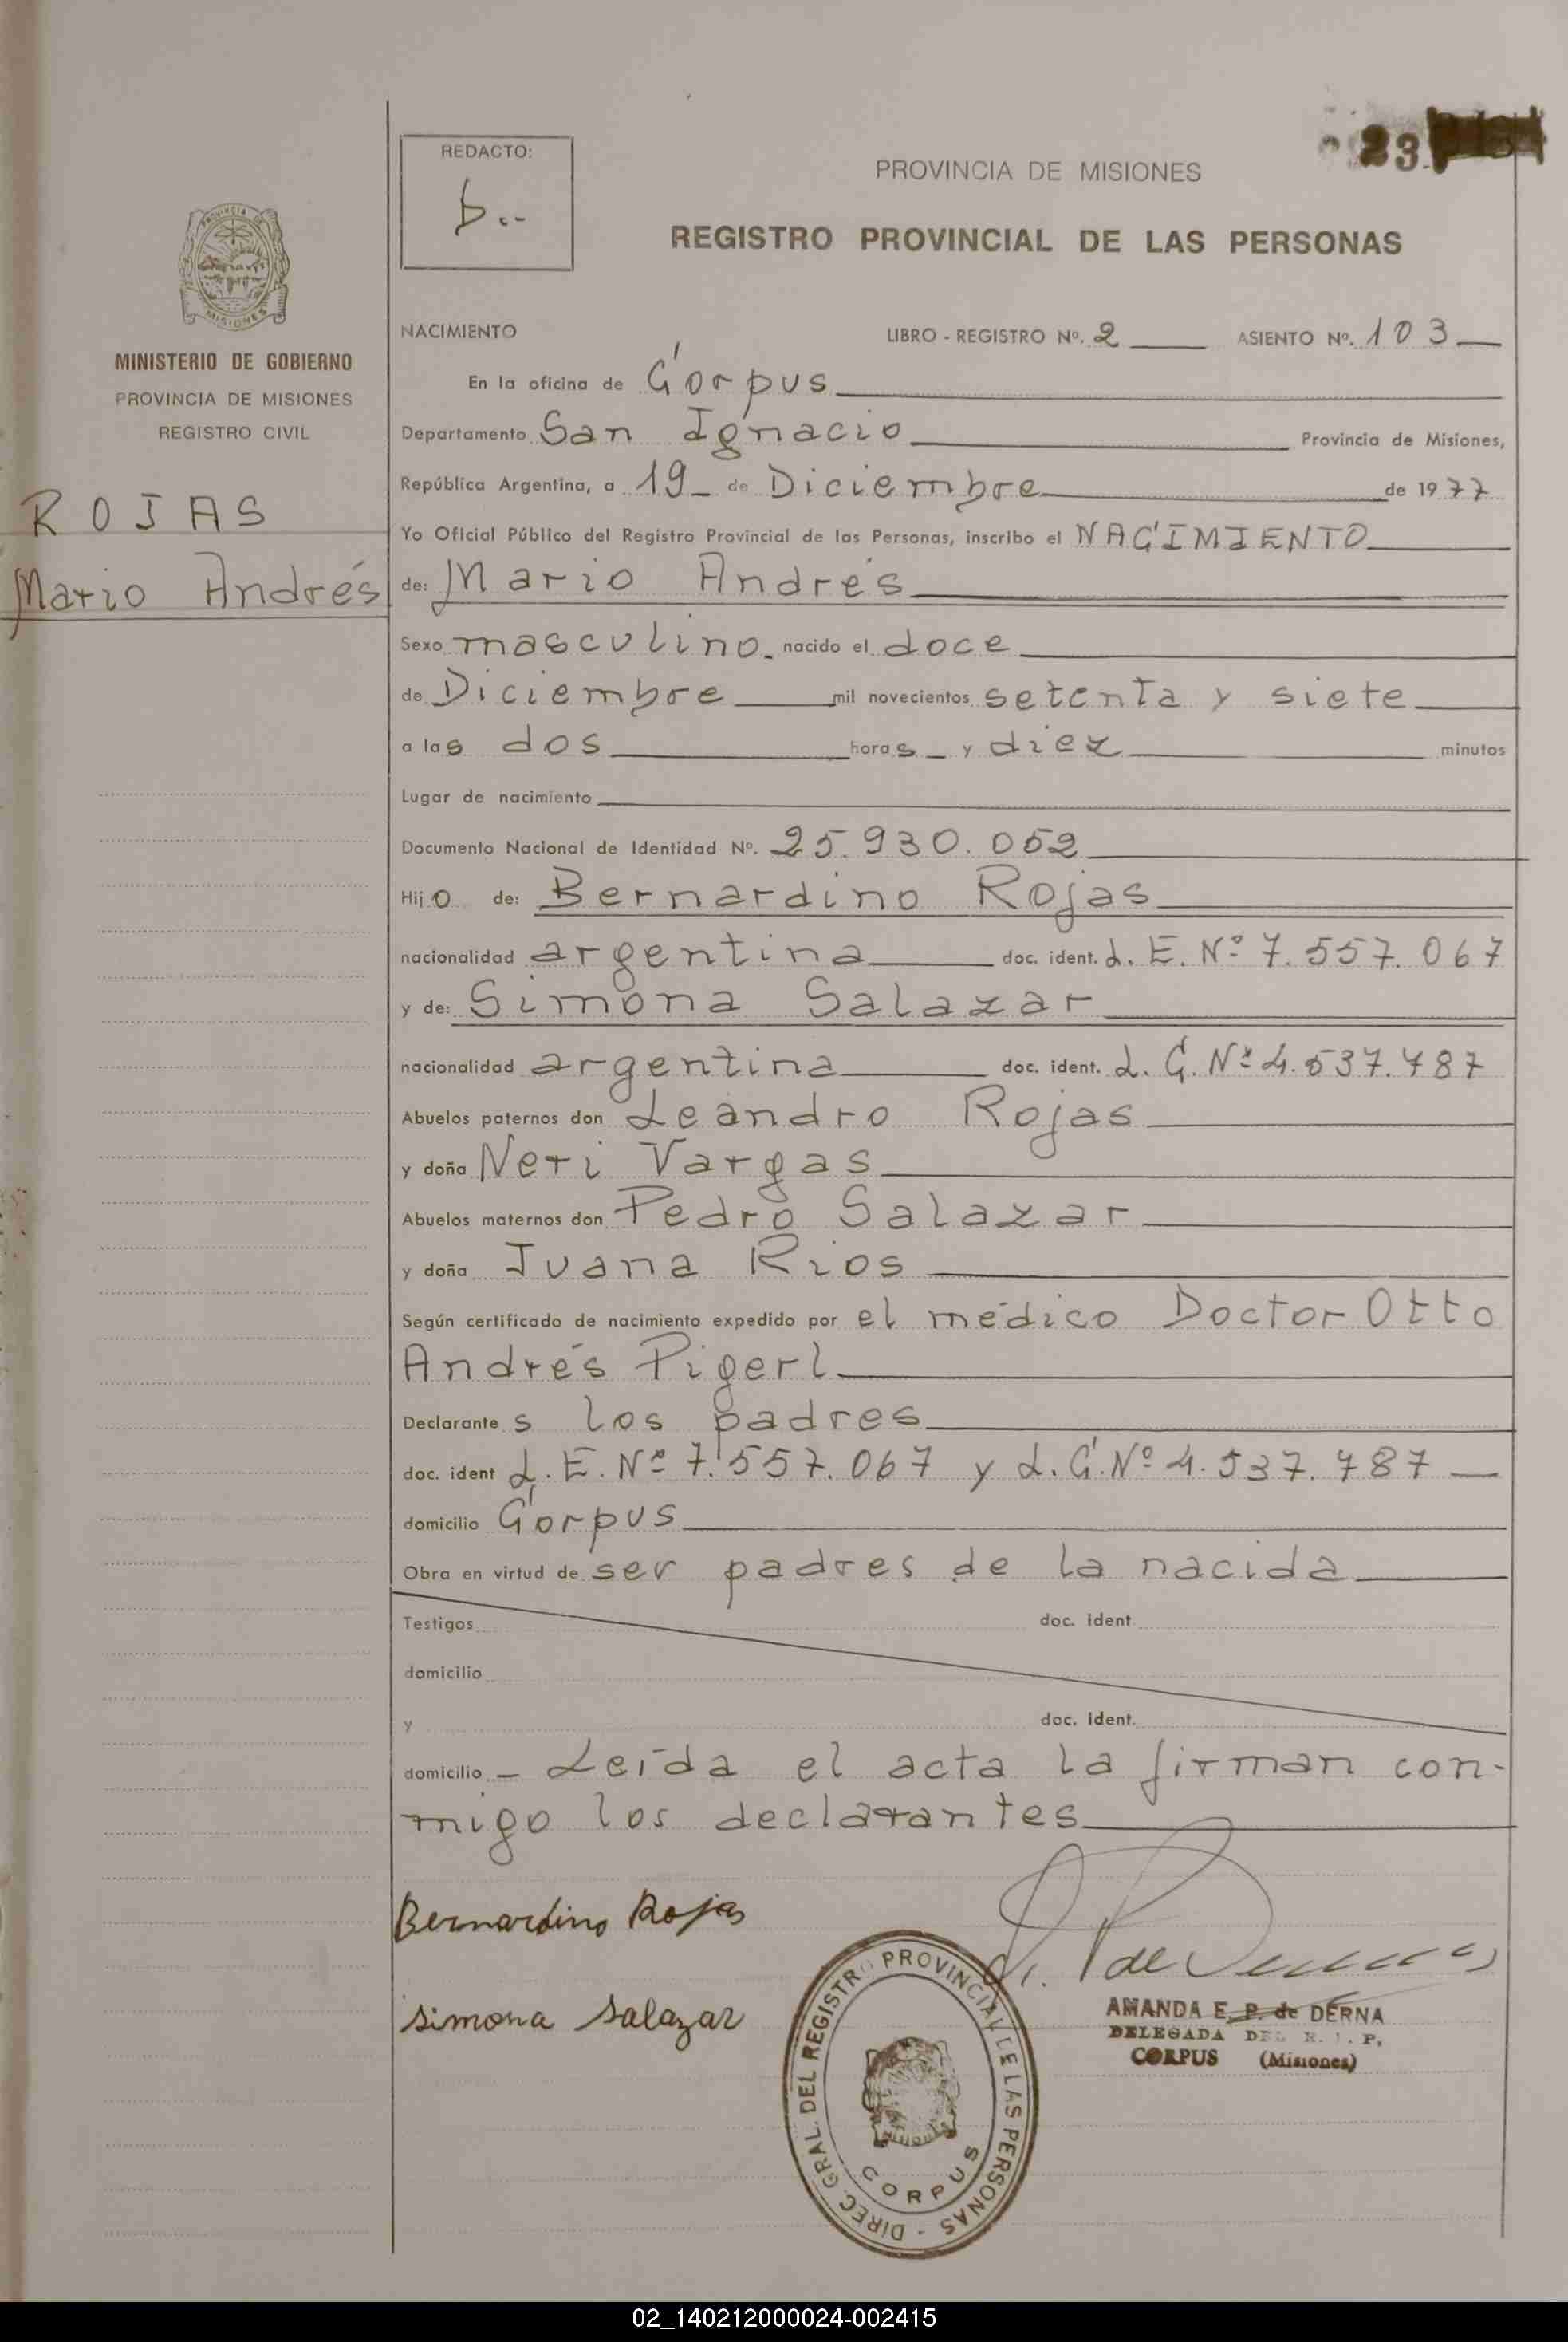 23
REDACTO:
PROVINCIA DE MISIONES
REGISTRO PROVINCIAL DE LAS PERSONAS
PROVINCIA DE
MISIONES
MINISTERIO DE GOBIERNO
PROVINCIA DE MISIONES
REGISTRO CIVIL
ROJAS
Mario Andrés
NACIMIENTO LIBRO - REGISTRO Nº. 2 ASIENTO Nº. 103
En la oficina de Corpus
Departamento San Ignacio Provincia de Misiones,
República Argentina, a 19 de Diciembre de 1977
Yo Oficial Público del Registro Provincial de las Personas, inscribo el NACIMIENTO
de: Mario Andrés
Sexo masculino. nacido el doce
de Diciembre mil novecientos setenta y siete
a las dos horas y diez minutos
Lugar de nacimiento
Documento Nacional de Identidad Nº. 25.930.052
Hijo de: Bernardino Rojas
nacionalidad argentina doc. ident. L. E. Nº 7.557.067
y de: Simona Salazar
nacionalidad argentina doc. ident. L. C. Nº 4.537.787
Abuelos paternos don Leandro Rojas
y doña Neri Vargas
Abuelos maternos don Pedro Salazar
y doña Juana Rios
Según certificado de nacimiento expedido por el médico Doctor Otto
Andrés Pigerl
Declarantes los padres
doc. ident L. E. Nº 7.557.067 y L. C. Nº 4.537.787
domicilio Corpus
Obra en virtud de ser padres de la nacida
Testigos doc. ident.
domicilio
y doc. ident.
domicilio - Leída el acta la firman con-
migo los declarantes
Bernardino Rojas
Simona Salazar
AMANDA E. P. de DERNA
DELEGADA DEL R. P. P.
CORPUS (Misiones)
DIREC GRAL. DEL REGISTRO PROVINCIAL DE LAS PERSONAS -
CORPUS
02_140212000024-002415